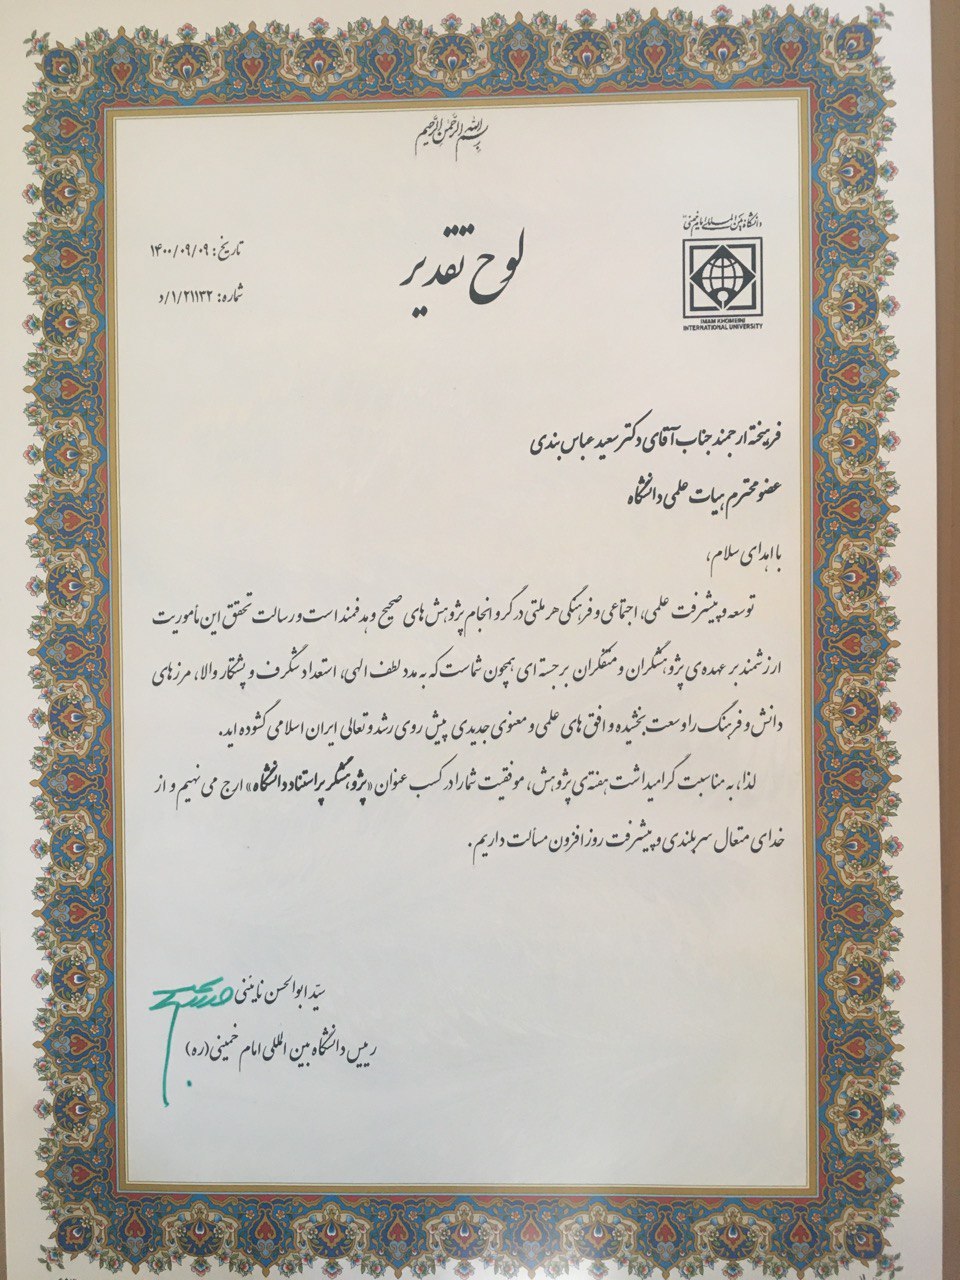 بسم الله الرحمن الرحیم
دانشگاه بین المللی امام خمینی
IMAM KHOMEINI
INTERNATIONAL UNIVERSITY
لوح تقدیر
تاریخ: ۱۴۰۰/۰۹/۰۹
شماره: ۱/۲۱۱۳۲/د
فرهیخته ارجمند جناب آقای دکتر سعید عباس بندی
عضو محترم هیات علمی دانشگاه
با اهدای سلام،
توسعه و پیشرفت علمی، اجتماعی و فرهنگی هر ملتی در گرو انجام پژوهش های صحیح و هدفمند است و رسالت تحقق این مأموریت
ارزشمند بر عهده ی پژوهشگران و متفکران برجسته ای همچون شماست که به مدد لطف الهی، استعداد شگرف و پشتکار والا، مرزهای
دانش و فرهنگ را وسعت بخشیده و افق های علمی و معنوی جدیدی پیش روی رشد و تعالی ایران اسلامی گشوده اید.
لذا، به مناسبت گرامیداشت هفته ی پژوهش، موفقیت شما را در کسب عنوان «پژوهشگر پراستناد دانشگاه» ارج می نهیم و از
خدای متعال سربلندی و پیشرفت روزافزون مسألت داریم.
سیّد ابوالحسن نایینی
رییس دانشگاه بین المللی امام خمینی(ره)